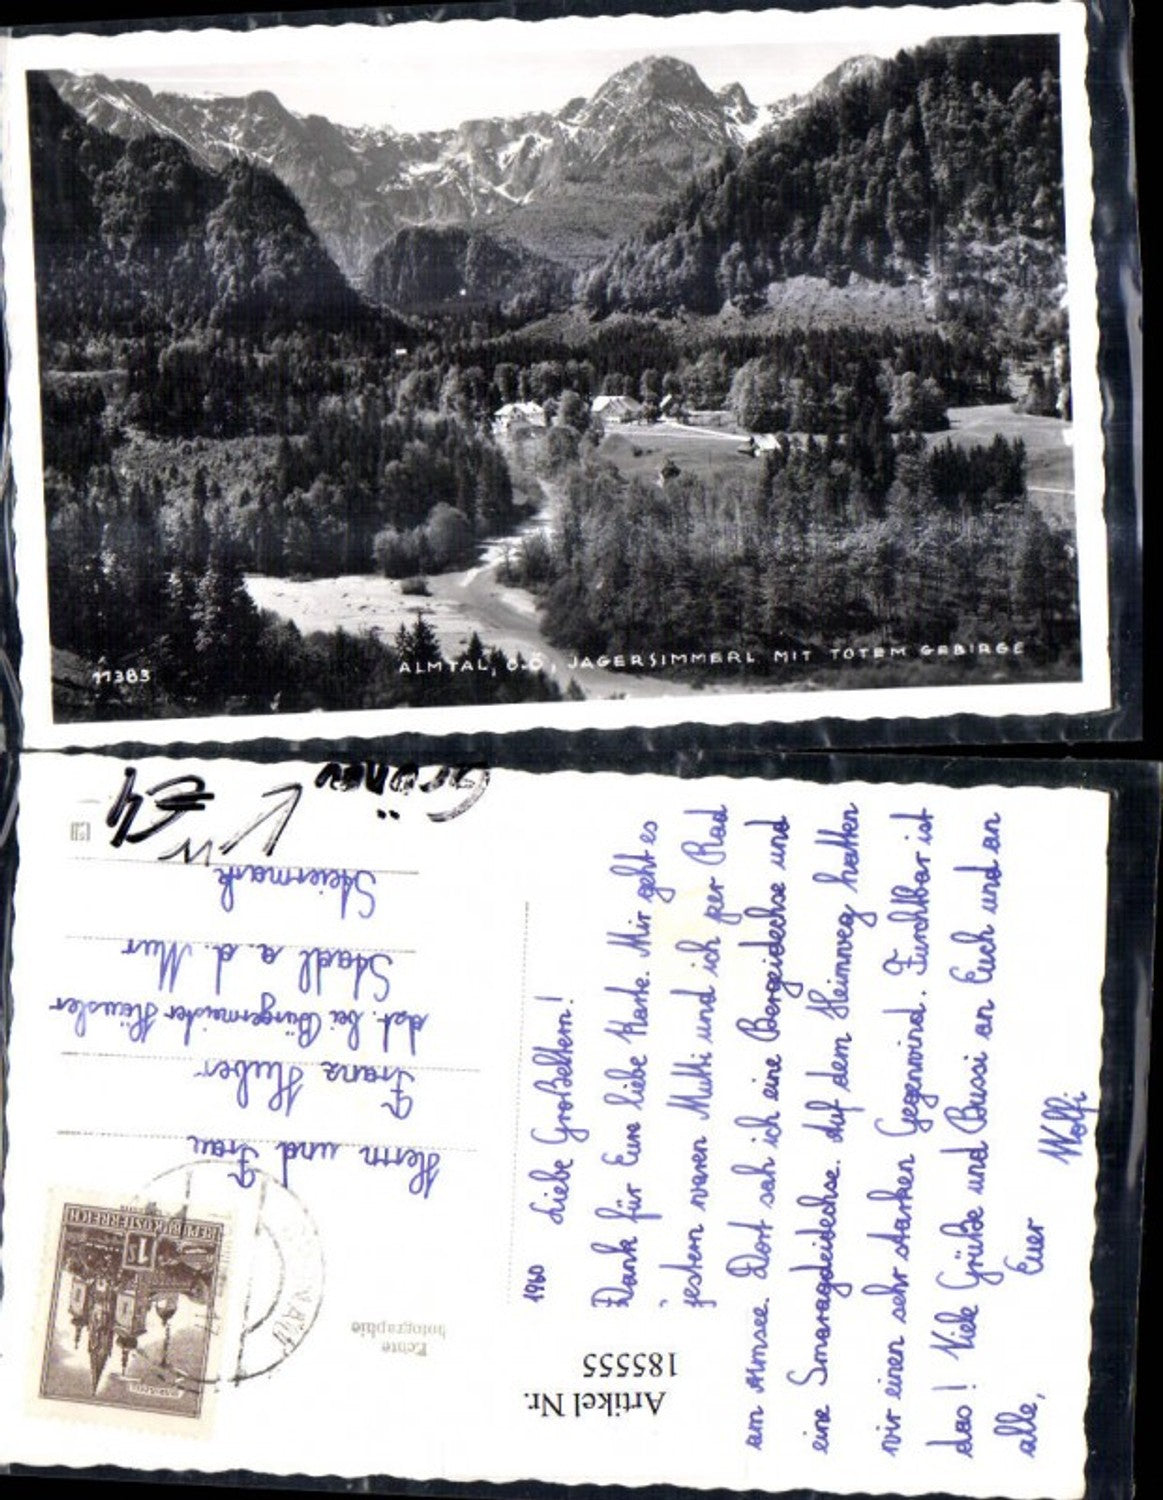 11383
ALMTAL, O.Ö., JAGERSIMMERL MIT TOTEM GEBIRGE
Grünau
€4
Herrn und Frau
Franz Huber
dzt. bei Bürgermeister Häusler
Stadl a. d. Mur
Steiermark
REPUBLIK ÖSTERREICH
1
Echte
Photographie
Artikel Nr.
185555
1960
Liebe Großeltern!
Dank für Eure liebe Karte. Mir geht es
Gestern waren Mutti und ich per Rad
am Almsee. Dort sah ich eine Bergeidechse und
eine Smaragdeidechse. Auf dem Heimweg hatten
wir einen sehr starken Gegenwind. Furchtbar ist
das! Viele Grüße und Bussi an Euch und an
alle,
Euer
Wolfi